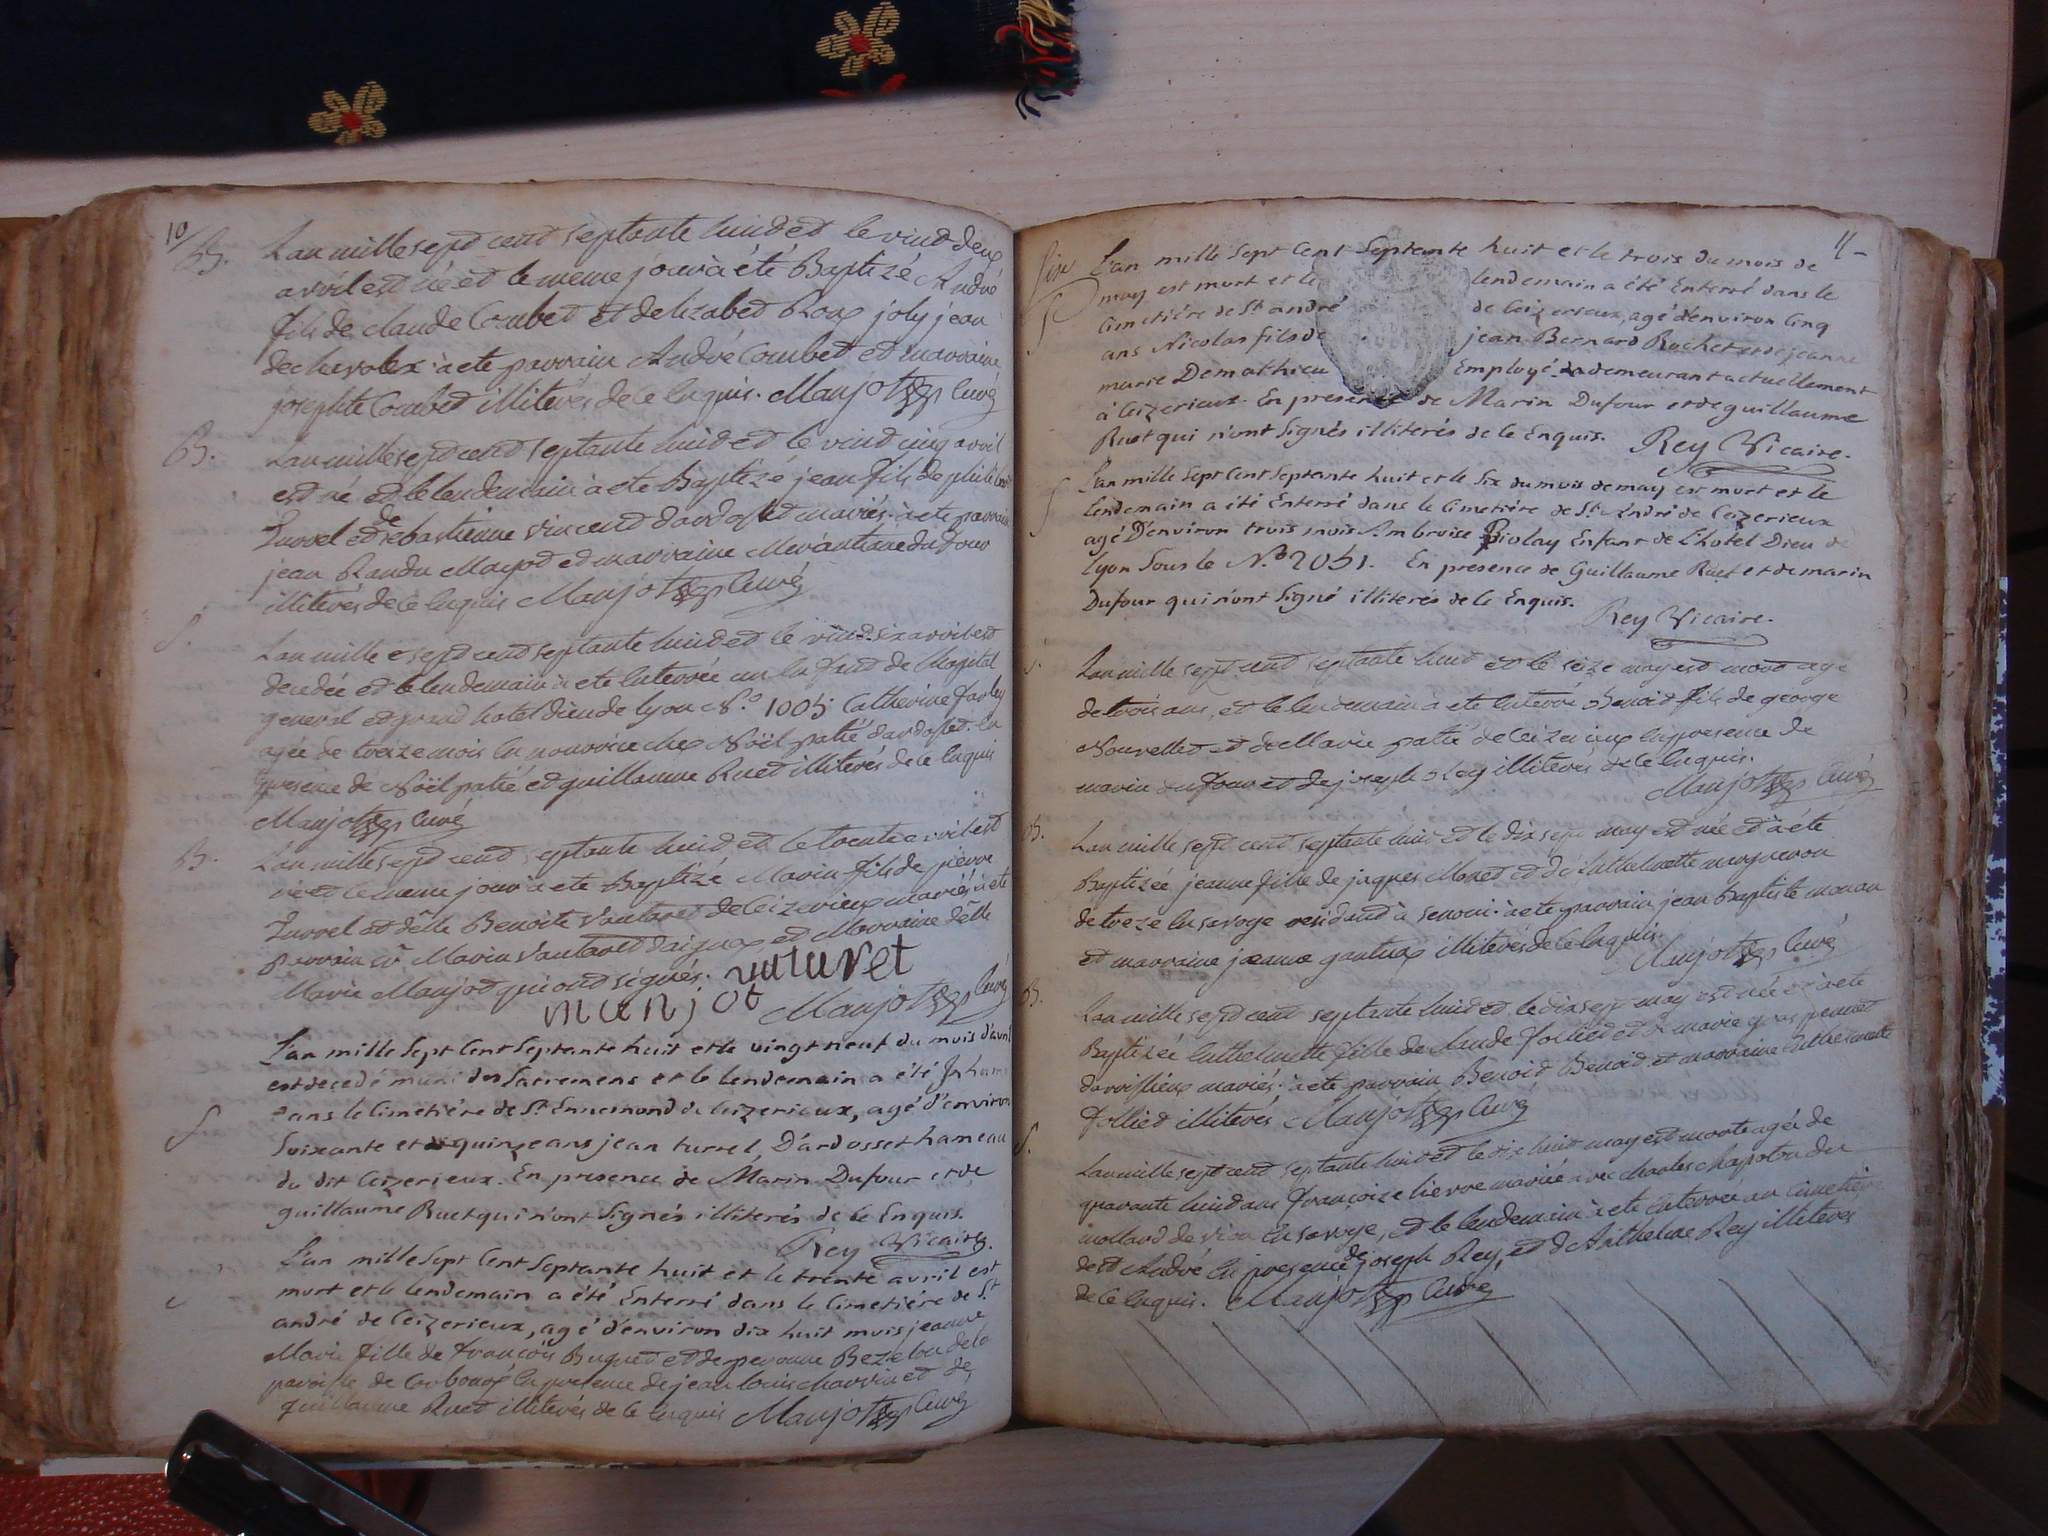 10
B. L'an mille sept cent septante huit et le vint deux
avril est né et le meme jour à été Baptizé André
fils de claude Combet et delizabet Roux joly jean
de chevolex à ete parrain André Combet et marraine
josephte Combet illiterés de ce Enquis. Manjot Curé
B. L'an mille sept cent septante huit et le vint cinq avril
est né et le lendemain à ete Baptizé jean fils de philibert
Turrel et de sebastienne vincent dardosset mariés. à ete parrain
jean Randu Mayod et marraine Mer dufour
illiterés de ce Enquis Manjot Curé
S. L'an mille e sept cent septante huit et le vint six avril est
decedée et le lendemain à ete Enterrée de l'hopital
general et grand hotel dieu de lyon N.o 1005 Catherine
agée de treize mois En nourrice chez Noël patié dardosset. En
presence de Noël patié et guillaume Ruet illiterés de ce Enquis
Manjot Curé
B. L'an mille sept cent septante huit et le trente avril est
né et le meme jour à ete Baptizé Marin fils de pierre
Turrel et dêlle Benoite Vautaret de Ceizerieux mariés, à ete
parrain sr Marin Vautaret et Marraine dêlle
Marie Manjot qui ont signés. vuturet
manjot Manjot Curé
L'an mille Sept Cent Septante huit et le vingt neuf du mois d'avril
est decedé muni des Sacremens et le lendemain a été Inhumé
S dans le Cimetiére de St Ennemond de Ceizerieux, agé d'environ
Soixante et quinze ans jean turrel, D'ardosset hameau
du dit Ceizerieux. En presence de Marin Dufour et de
guillaume Ruet qui n'ont Signés illiterés de ce Enquis.
Rey Vicaire.
L'an mille Sept Cent Septante huit et le trente avril est
mort et le lendemain a été Enterré dans le Cimetiére de St
andré de Ceizerieux, agé d'environ dix huit mois jeanne
Marie fille de françois Buguet et de peronne Bezelon de la
paroisse de Corbonox En presence de jean louis charvin et de
guillaume Ruet illiterés de ce Enquis Manjot Curé
11
L'an mille Sept Cent Septante huit et le trois du mois de
may est mort et le lendemain a été Enterré dans le
Cimetiére de St andré de Ceizerieux, agé d'environ Cinq
ans Nicolas fils de jean Bernard Rochet et de jeanne
marie Demathieu Employé demeurant actuellement
à Ceizerieux. En presence de Marin Dufour et de guillaume
Ruet qui n'ont Signés illiterés de ce Enquis. Rey Vicaire.
L'an mille Sept Cent Septante huit et le Six du mois de may est mort et le
S lendemain a été Enterré dans le Cimetiére de St André de Ceizerieux
agé D'environ trois mois Ambroise Biolay Enfant de L'hotel Dieu de
Lyon Sous le No 2051. En presence de Guillaume Ruet et de marin
Dufour qui n'ont Signé illiterés de ce Enquis.
Rey Vicaire.
S. L'an mille sept cent septante huit et le seize may est mort age
de trois ans, et le lendemain à ete Enterré Benoit fils de george
Nouvellet et de Marie patié de Ceizerieux En presence de
marin dufour et de joseph Rey illiterés de ce Enquis.
Manjot Curé
B. L'an mille sept cent septante huit et le dix sept may est née et à eté
Baptizée jeanne fille de jaques Monet et de Enthelmette mergueron
de treze En savoye residant à senoui. à ete parrain jean Baptiste monan
et marraine jeanne gautiex illiterés de ce Enquis.
Manjot Curé
B. L'an mille sept cent septante huit et le dix sept may est née et à ete
Baptizée Enthelmette fille de claude follied et de marie
mariés. à ete parrain Benoit Benoit et marraine Enthelmette
follied illiterés Manjot Curé
S. L'an mille sept cent septante huit et le dix huit may est morte agée de
quarante huit ans françoize lierre mariée avec charles chapot du
mollard de vion En savoye, et le lendemain à ete Enterrée au cimetiére
de st André En presence de joseph Rey, et d'Anthelme Rey illiterés
de ce Enquis. Manjot Curé